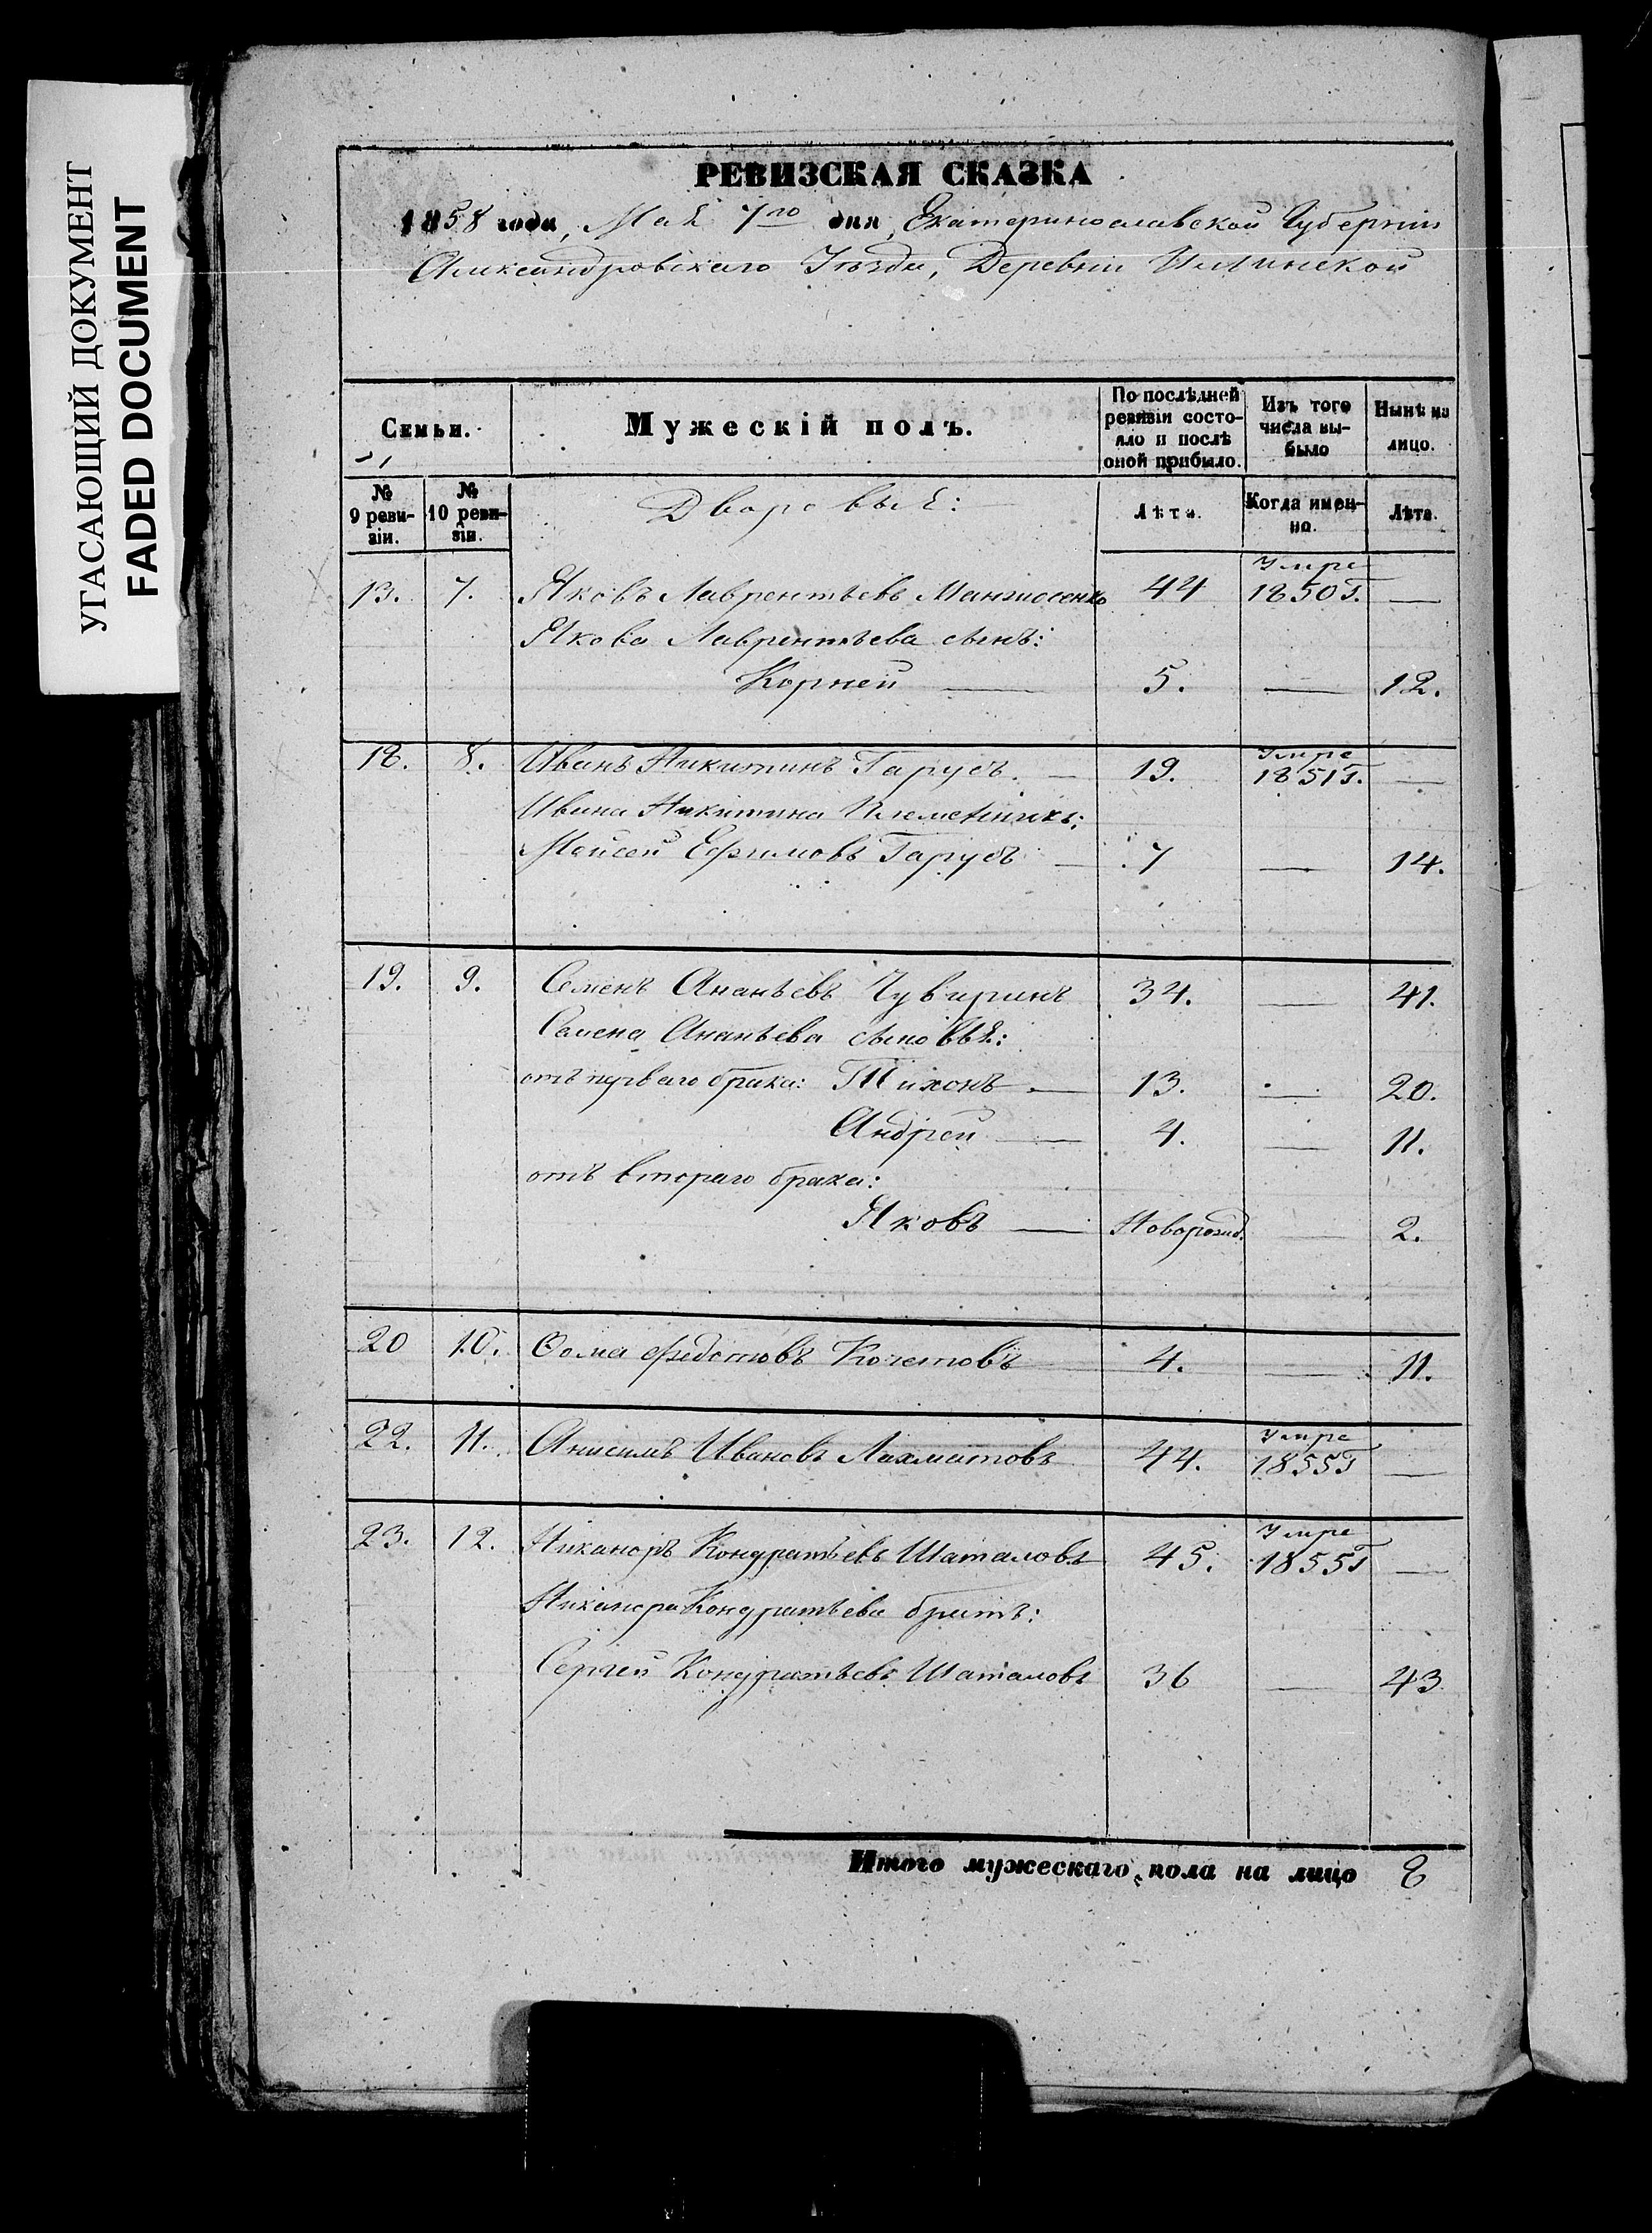 УГАСАЮЩИЙ ДОКУМЕНТ
FADED DOCUMENT
РЕВИЗСКАЯ СКАЗКА
1858 года, Маія 7го дня, Екатеринославской Губерніи
Александровскаго Уѣзда, Деревни
Семьи. Мужескій полъ. По послѣдней ревизіи состояло и послѣ оной прибыло. Изъ того числа выбыло Нынѣ на лицо.
№ 9 ревизіи. № 10 ревизіи. Дворовые: Лѣта. Когда именно. Лѣта.
13. 7. Яковъ Лаврентьевъ 44 Умре 1850 г. —
Якова Лаврентьева сынъ:
Корней — 5. — 12.
18. 8. Иванъ Никитинъ Гарусъ. — 19. Умре 1851 г. —
Ивана Никитина Племянникъ:
Мойсей Ефимовъ Гарусъ — 7 — 14.
19. 9. Семенъ Ананьевъ Чувиринъ 34. — 41.
Семена Ананьева сыновья:
отъ перваго брака: Тихонъ — 13. — 20.
Андрей — 4. — 11.
отъ втораго брака:
Яковъ — Новорожд. — 2.
20 10. Ѳома Федотовъ Кочетовъ 4. — 11.
22. 11. Анисимъ Ивановъ Лахматовъ 44. Умре 1855 г —
23. 12. Никаноръ Кондратьевъ Шаталовъ 45. Умре 1855 г —
Никанора Кондратьева братъ:
Сергей Кондратьевъ Шаталовъ 36 — 43
Итого мужескаго пола на лицо 8